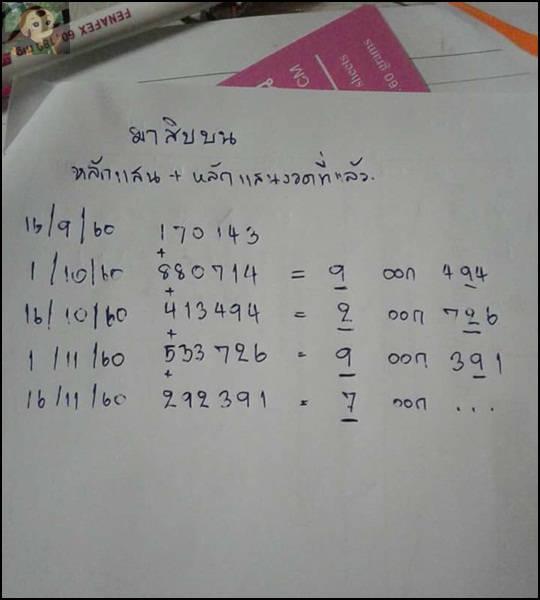 FENAFEX 60, 789 mg
60 grams
sheets
CM
มาสิบบน
หลักแสน + หลักแสนงวดที่แล้ว.
16/9/60 170143
+
1/10/60 880714 = 9 ออก 494
+
16/10/60 413494 = 2 ออก 726
+
1/11/60 533726 = 9 ออก 391
+
16/11/60 292391 = 7 ออก ...